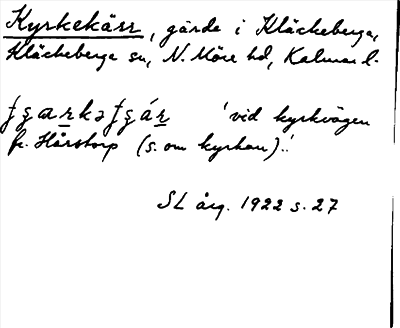 Kyrkekärr, gärde i Kläckeberga,
Kläckeberga sn, N. Möre hd, Kalmar l.
'vid kyrkvägen
fr. Hårstorp (s. om kyrkan).'
SL årg. 1922 s. 27